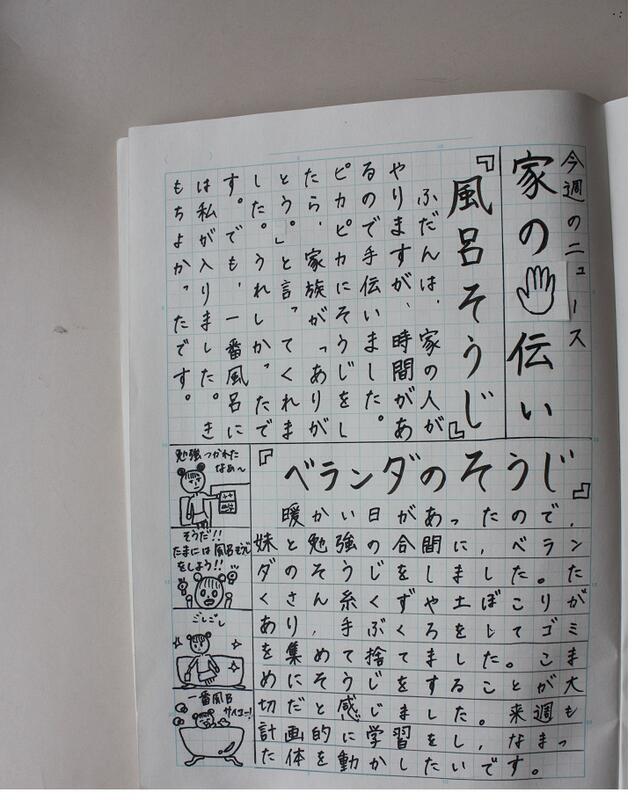 今週のニュース
家の伝い
『風呂そうじ』
ふだんは、家の人が
やりますが、時間があ
るので手伝いました。
ピカピカにそうじをし
たら、家族が「ありが
とう。」と言ってくれま
した。うれしかったで
す。でも、一番風呂に
は私が入りました。き
もちよかったです。
『ベランダのそうじ』
暖かい日があったので、
妹と勉強の合間に、ベラン
ダのそうじをしました。た
くさん糸くずや土ぼこりが
あり、手ぶくろをしてゴミ
を集めて捨てました。こま
めにそうじをすることが大
切だと感じました。来週も
計画的に学習をし、なまっ
た体を動かしたいです。
勉強つかれた
なぁ〜
そうだ!!
たまには風呂そうじ
をしよう!!
ごしごし
一番風呂
サイコー!